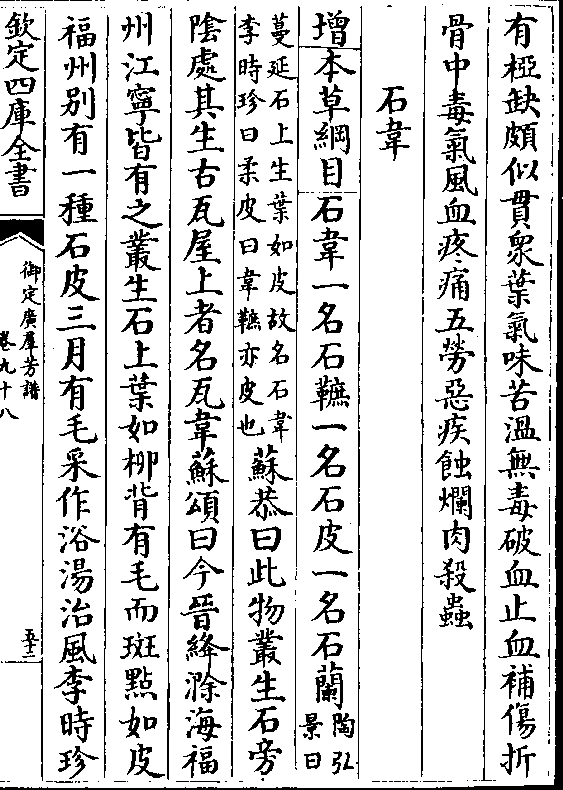 有椏缺頗似貫衆葉氣味苦溫無毒破血止血補傷折
骨中毒氣風血疼痛五勞惡疾蝕爛肉殺蟲
石韋
增本草綱目石韋一名石䩾一名石皮一名石蘭陶弘景曰
蔓延石上生葉如皮故名石韋
李時珍曰柔皮曰韋䩾亦皮也
蘇恭曰此物叢生石旁
陰處其生古瓦屋上者名瓦韋蘇頌曰今晉絳滁海福
州江寧皆有之叢生石上葉如柳背有毛而斑點如皮
福州別有一種石皮三月有毛采作浴湯治風李時珍
欽定四庫全書
御定廣羣芳譜
卷九十八